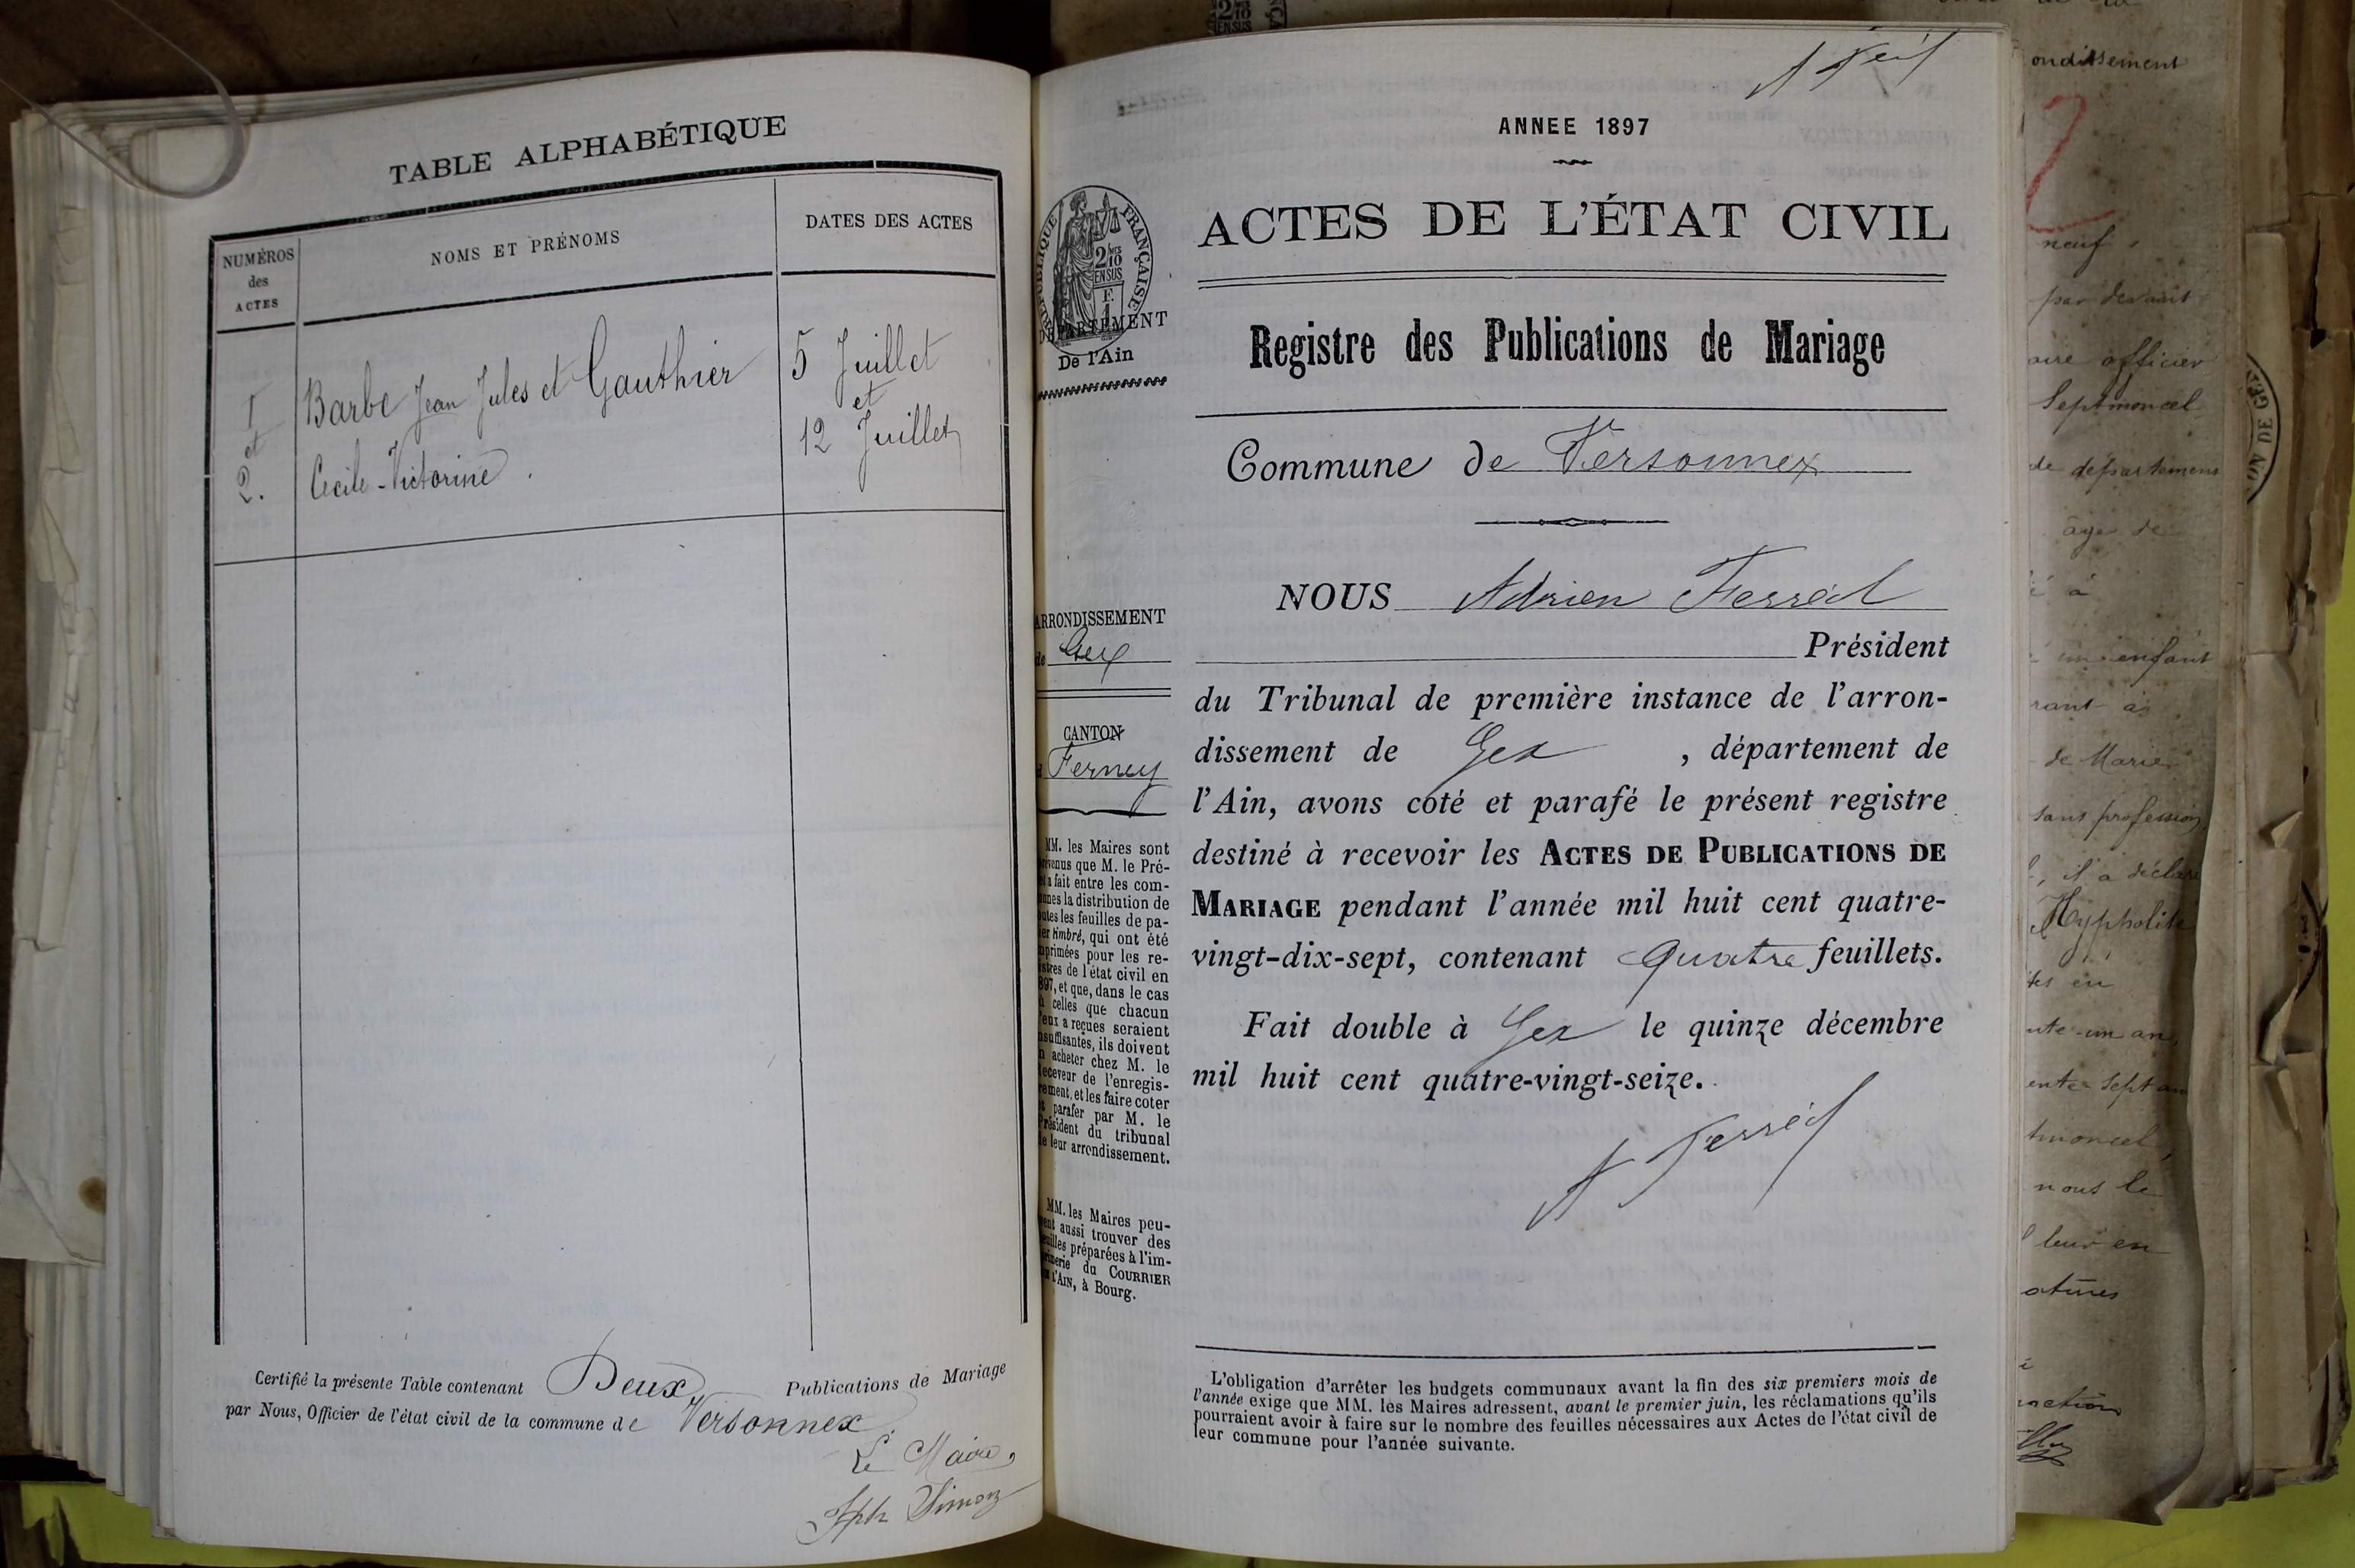 TABLE ALPHABÉTIQUE
NUMÉROS
des
ACTES
NOMS ET PRÉNOMS
DATES DES ACTES
1
et
2.
Barbe Jean Jules et Gauthier
Cecile-Victorine.
5 Juillet
et
12 Juillet
Certifié la présente Table contenant Deux Publications de Mariage
par Nous, Officier de l'état civil de la commune de Versonnex
Le Maire,
Jph Simon
ANNEE 1897
RÉPUBLIQUE FRANÇAISE
2/10
EN SUS
DÉPARTEMENT
De l'Ain
ARRONDISSEMENT
de Gex
CANTON
Ferney
MM. les Maires sont
prévenus que M. le Pré-
fet a fait entre les com-
munes la distribution de
toutes les feuilles de pa-
pier timbré, qui ont été
imprimées pour les re-
gistres de l'état civil en
1897, et que, dans le cas
où celles que chacun
d'eux a reçues seraient
insuffisantes, ils doivent
en acheter chez M. le
Receveur de l'enregis-
trement, et les faire coter
et parafer par M. le
Président du tribunal
de leur arrondissement.
MM. les Maires peu-
vent aussi trouver des
feuilles préparées à l'im-
primerie du COURRIER
DE L'AIN, à Bourg.
ACTES DE L'ÉTAT CIVIL
Registre des Publications de Mariage
Commune de Versonnex
NOUS Adrien Ferréol
Président
du Tribunal de première instance de l'arron-
dissement de Gex, département de
l'Ain, avons coté et parafé le présent registre
destiné à recevoir les ACTES DE PUBLICATIONS DE
MARIAGE pendant l'année mil huit cent quatre-
vingt-dix-sept, contenant Quatre feuillets.
Fait double à Gex le quinze décembre
mil huit cent quatre-vingt-seize.
L'obligation d'arrêter les budgets communaux avant la fin des six premiers mois de
l'année exige que MM. les Maires adressent, avant le premier juin, les réclamations qu'ils
pourraient avoir à faire sur le nombre des feuilles nécessaires aux Actes de l'état civil de
leur commune pour l'année suivante.
ondissement
2
neuf,
par devant
aire officier
Septmoncel
de département
âgé de
à
un enfant
de Marie
sans profession
, il a déclaré
Hyppolite
en
nte-un an,
ente sept an
tmoncel,
nous le
leur en